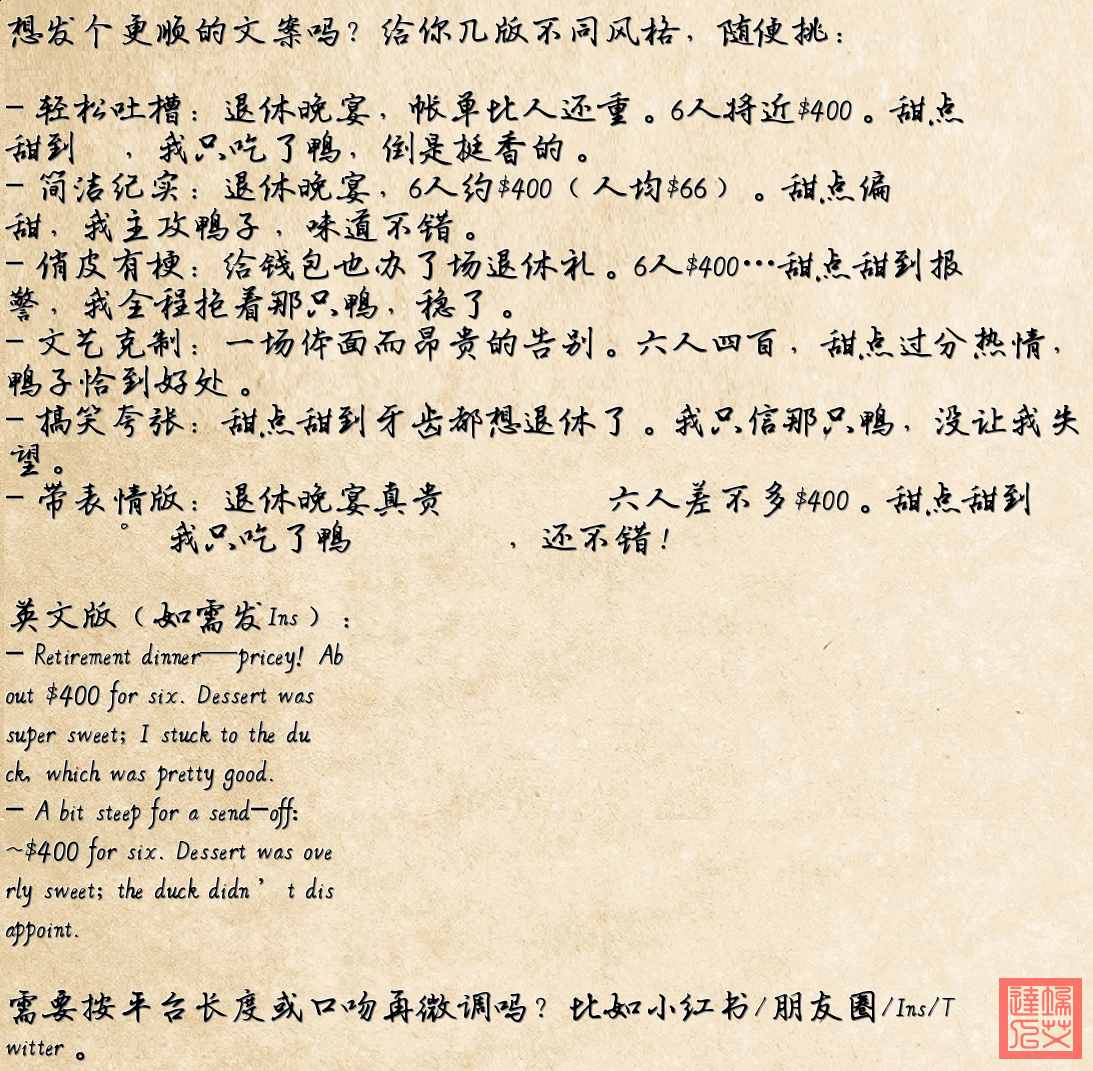 想发个更顺的文案吗？给你几版不同风格，随便挑：
- 轻松吐槽：退休晚宴，帐单比人还重。6人将近$400。甜点
甜到　，我只吃了鸭，倒是挺香的。
- 简洁纪实：退休晚宴，6人约$400（人均$66）。甜点偏
甜，我主攻鸭子，味道不错。
- 俏皮有梗：给钱包也办了场退休礼。6人$400…甜点甜到报
警，我全程抱着那只鸭，稳了。
- 文艺克制：一场体面而昂贵的告别。六人四百，甜点过分热情，
鸭子恰到好处。
- 搞笑夸张：甜点甜到牙齿都想退休了。我只信那只鸭，没让我失
望。
- 带表情版：退休晚宴真贵　六人差不多$400。甜点甜到
。我只吃了鸭　，还不错！
英文版（如需发Ins）：
- Retirement dinner—pricey! Ab
out $400 for six. Dessert was
super sweet; I stuck to the du
ck, which was pretty good.
- A bit steep for a send-off:
~$400 for six. Dessert was ove
rly sweet; the duck didn’t dis
appoint.
需要按平台长度或口吻再微调吗？比如小红书/朋友圈/Ins/T
witter。